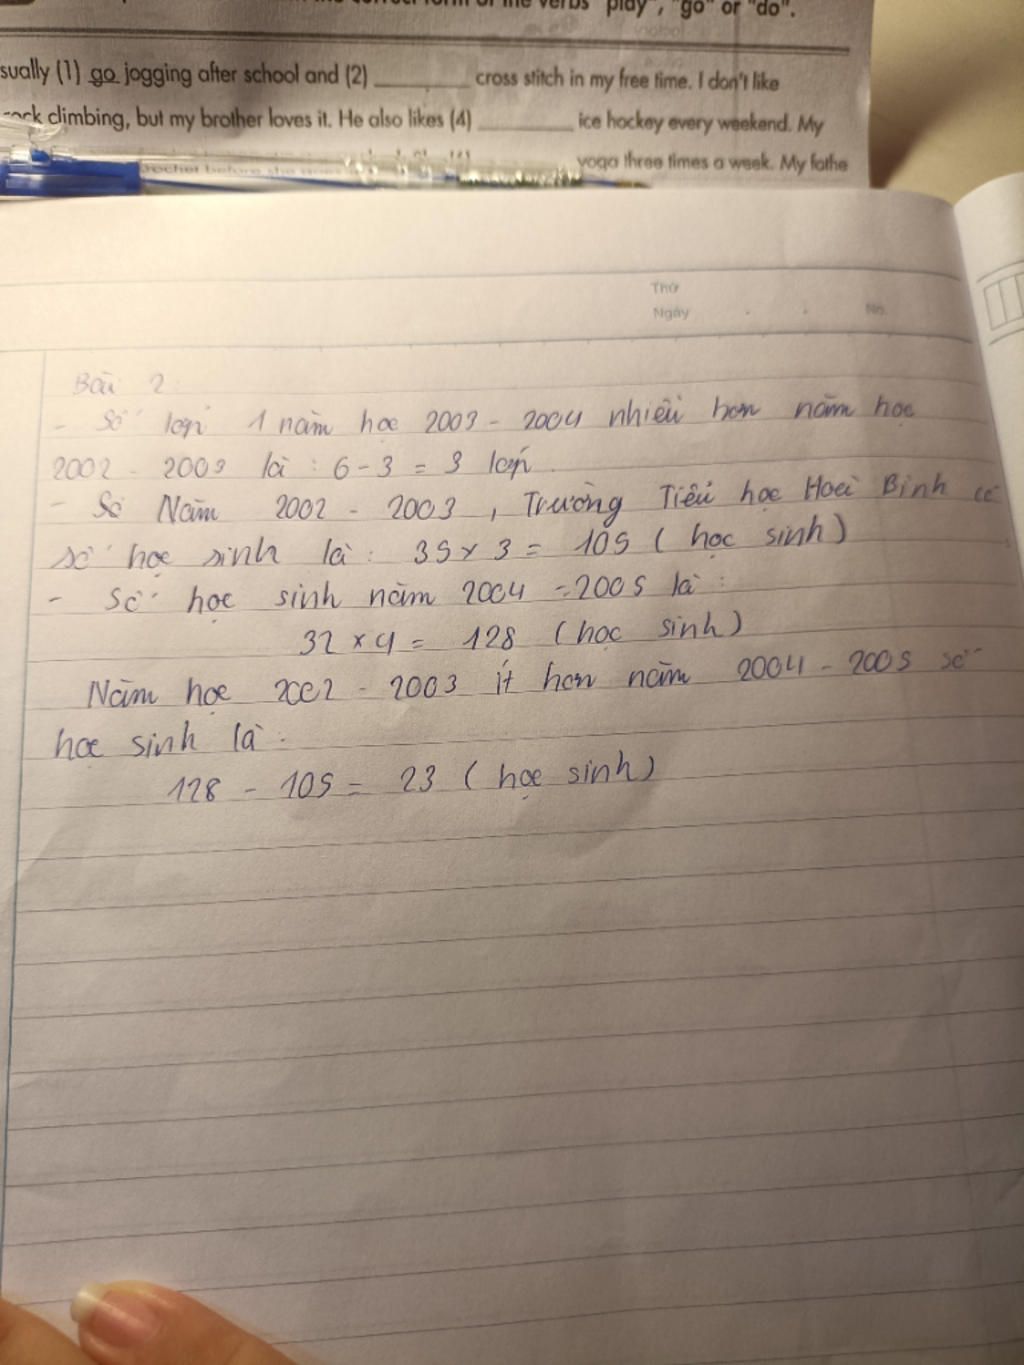 the correct form of the verbs "play", "go" or "do".
sually (1) go jogging after school and (2) ________ cross stitch in my free time. I don't like
rock climbing, but my brother loves it. He also likes (4) ________ ice hockey every weekend. My
yoga three times a week. My fathe
Thứ
Ngày No.
Bài 2:
- Số lớp 1 năm học 2003 - 2004 nhiều hơn năm học
2002 - 2003 là : 6 - 3 = 3 lớp.
- Số Năm 2002 - 2003, Trường Tiểu học Hoà Bình có
số học sinh là : 35 x 3 = 105 (học sinh)
- Số học sinh năm 2004 - 2005 là :
32 x 4 = 128 (học sinh)
Năm học 2002 - 2003 ít hơn năm 2004 - 2005 số
học sinh là :
128 - 105 = 23 (học sinh)